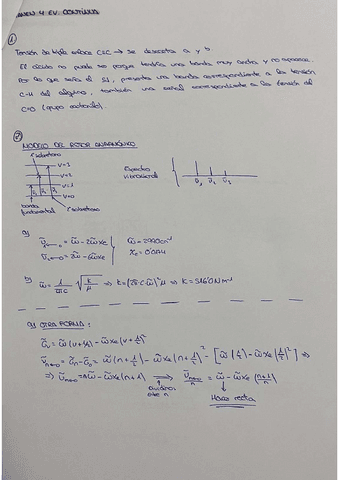 ANEU 4 EV. CONTINUA
①
Tensión de triple enlace C≡C → Se descarta a y b.
El ácido no puede ser porque tendría una banda muy ancha y no aparece.
Por lo que sería el S1, presenta una banda correspondiente a la tensión
C-H del alquino, también una señal correspondiente a la tensión del
C=O (grupo carbonilo).
②
MODELO DEL ROTOR ANARMÓNICO
1º sobretono
V=3
V=2
V=1
V=0
banda fundamental
2º sobretono
Espectro vibracional
a)
ṽ₁←₀ = ω̃ - 2ω̃xe
ṽ₂←₀ = 2ω̃ - 6ω̃xe
b) ω̃ = 1/2πc √(k/μ) ⇒ k = (2πcω̃)²μ ⇒ k =
a) OTRA FORMA:
ṽᵥ = ω̃(v+½) - ω̃xe(v+½)²
ṽₙ←₀ = ṽₙ - ṽ₀ = ω̃(n+½) - ω̃xe(n+½)² - [ω̃(½) - ω̃xe(½)²] ⇒
⇒ ṽₙ←₀ = nω̃ - ω̃xe n(n+1) ⇒ ṽₙ←₀/n = ω̃ - ω̃xe (n+1)
entre n
Hacer recta